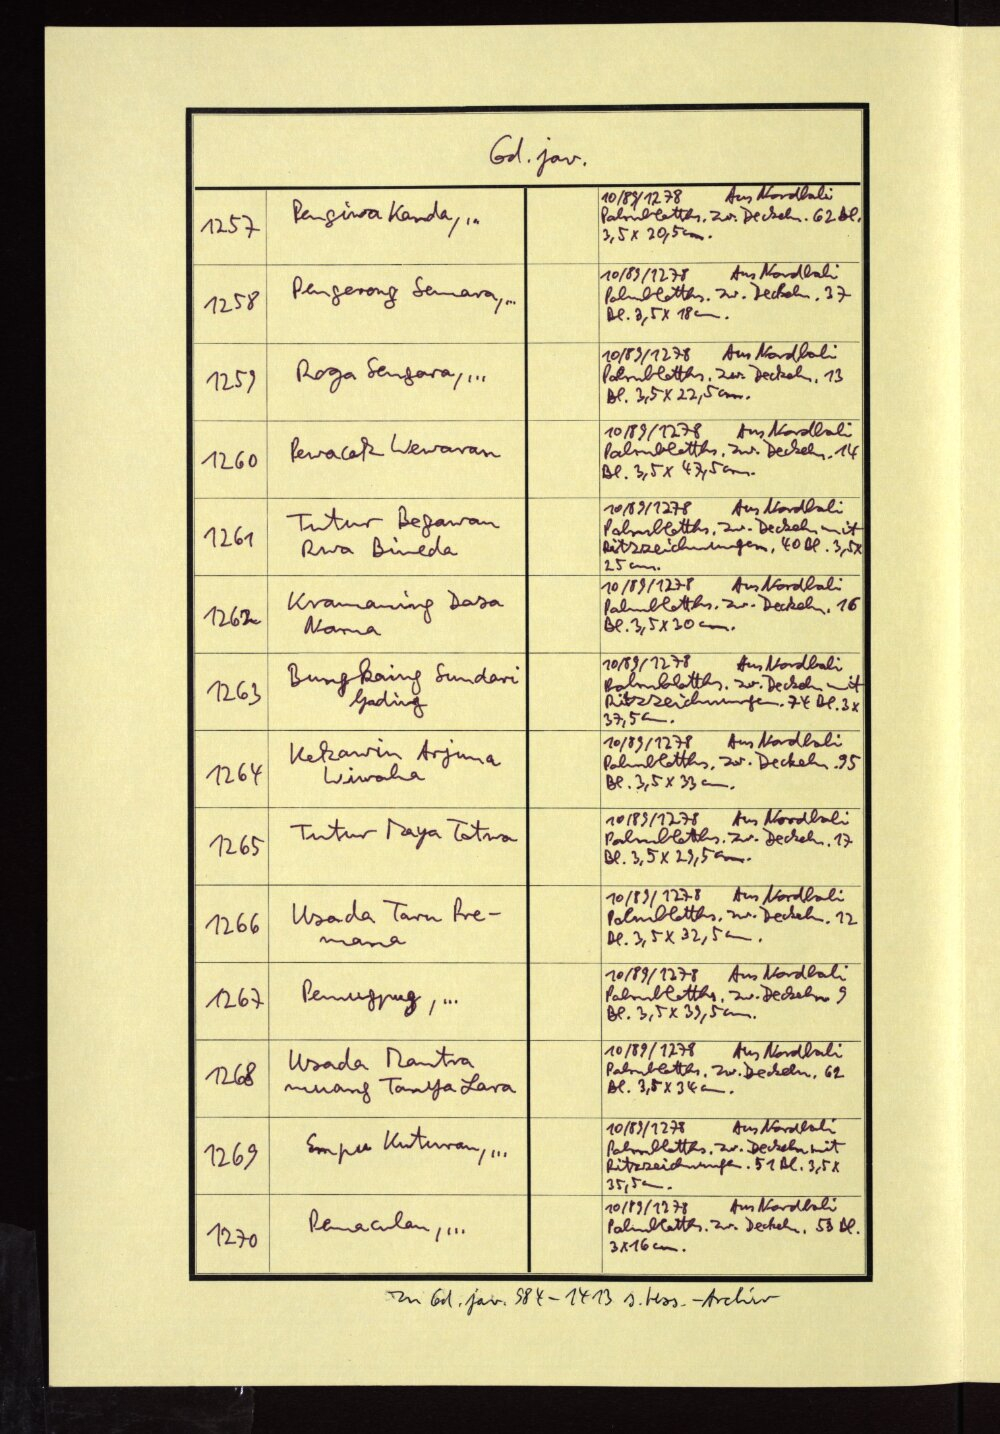 Cd. jav.
1257
Pengiwa Kanda,...
10/89/1278 Aus Nordbali
Palmblatths. zw. Deckeln. 62 Bl.
3,5 x 20,5 cm.
1258
Pengerong Semara,...
10/89/1278 Aus Nordbali
Palmblatths. zw. Deckeln. 37
Bl. 3,5 x 18 cm.
1259
Roga Sengara,...
10/89/1278 Aus Nordbali
Palmblatths. zw. Deckeln. 13
Bl. 3,5 x 22,5 cm.
1260
Pewacek Wewaran
10/89/1278 Aus Nordbali
Palmblatths. zw. Deckeln. 14
Bl. 3,5 x 47,5 cm.
1261
Tutur Begawan
Rwa Bineda
10/89/1278 Aus Nordbali
Palmblatths. zw. Deckeln mit
Ritzzeichnungen. 40 Bl. 3,5 x
25 cm.
1262
Kramaning Dasa
Nama
10/89/1278 Aus Nordbali
Palmblatths. zw. Deckeln. 16
Bl. 3,5 x 30 cm.
1263
Bungkaing Sundari
Gading
10/89/1278 Aus Nordbali
Palmblatths. zw. Deckeln mit
Ritzzeichnungen. 74 Bl. 3 x
37,5 cm.
1264
Kekawin Arjuna
Wiwaha
10/89/1278 Aus Nordbali
Palmblatths. zw. Deckeln. 95
Bl. 3,5 x 33 cm.
1265
Tutur Maya Tatwa
10/89/1278 Aus Nordbali
Palmblatths. zw. Deckeln. 17
Bl. 3,5 x 29,5 cm.
1266
Usada Taru Pre-
mana
10/89/1278 Aus Nordbali
Palmblatths. zw. Deckeln. 12
Bl. 3,5 x 32,5 cm.
1267
Pemugpug,...
10/89/1278 Aus Nordbali
Palmblatths. zw. Deckeln 9
Bl. 3,5 x 39,5 cm.
1268
Usada Mantra
muang Tanya Lara
10/89/1278 Aus Nordbali
Palmblatths. zw. Deckeln. 62
Bl. 3,5 x 34 cm.
1269
Empu Kuturan,...
10/89/1278 Aus Nordbali
Palmblatths. zw. Deckeln mit
Ritzzeichnungen. 51 Bl. 3,5 x
35,5 cm.
1270
Pemaculan,...
10/89/1278 Aus Nordbali
Palmblatths. zw. Deckeln. 53 Bl.
3 x 16 cm.
Zu Cd. jav. 984-1413 s. Hss.-Archiv